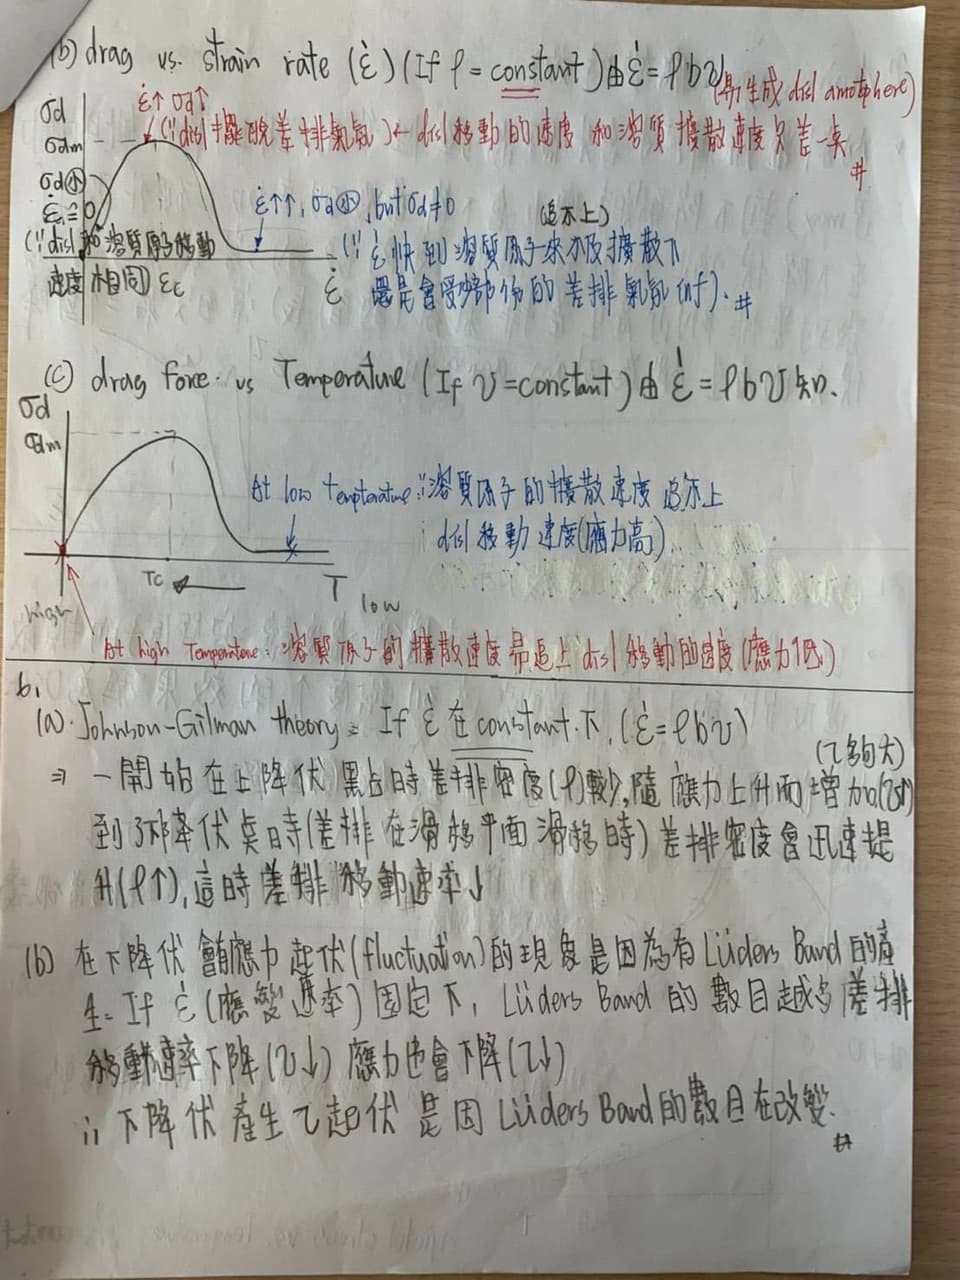 (b) drag vs. strain rate (ε̇) (If ρ = constant) 由 ε̇ = ρbv
(易生成 disl amotphere)
σd
ε̇↑ σd↑
σdm
(∵disl 擺脫差排氣氛) ← disl 移動的速度 和溶質擴散速度只差一點 #
σd小
ε̇ ≈ 0
(∵disl 和溶質原子移動
速度相同) ε̇c
ε̇
ε̇↑↑, σd小, but σd≠0
(追不上)
(∵ ε̇ 快到溶質原子來不及擴散下
還是會受部份的差排氣氛 inf). #
(c) drag force. vs Temperature (If v = constant) 由 ε̇ = ρbv 知.
σd
σdm
At low temperature ∵溶質原子的擴散速度追不上
disl 移動速度(應力高)
Tc
T
high
low
At high Temperature: 溶質原子的擴散速度易追上 disl 移動的速度(應力低)
6.
(a). Johnson-Gilman theory = If ε̇ 在 constant 下, (ε̇ = ρbv)
(τ夠大)
⇒ 一開始在上降伏點時差排密度(ρ)較少, 隨應力上升而增加(τ↑)
到了下降伏點時(差排在滑移平面滑移時) 差排密度會迅速提
升(ρ↑), 這時差排移動速率↓
(b) 在下降伏會有應力起伏(fluctuation)的現象是因為有 Lüders Band 的產
生= If ε̇ (應變速率) 固定下, Lüders Band 的數目越多差排
移動速率下降(v↓) 應力也會下降(τ↓)
∴ 下降伏產生 τ 起伏是因 Lüders Band 的數目在改變. #